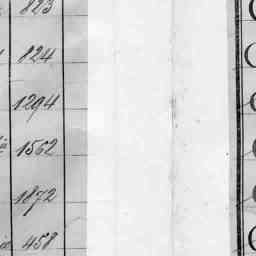 823
824
1294
1562
1872
458